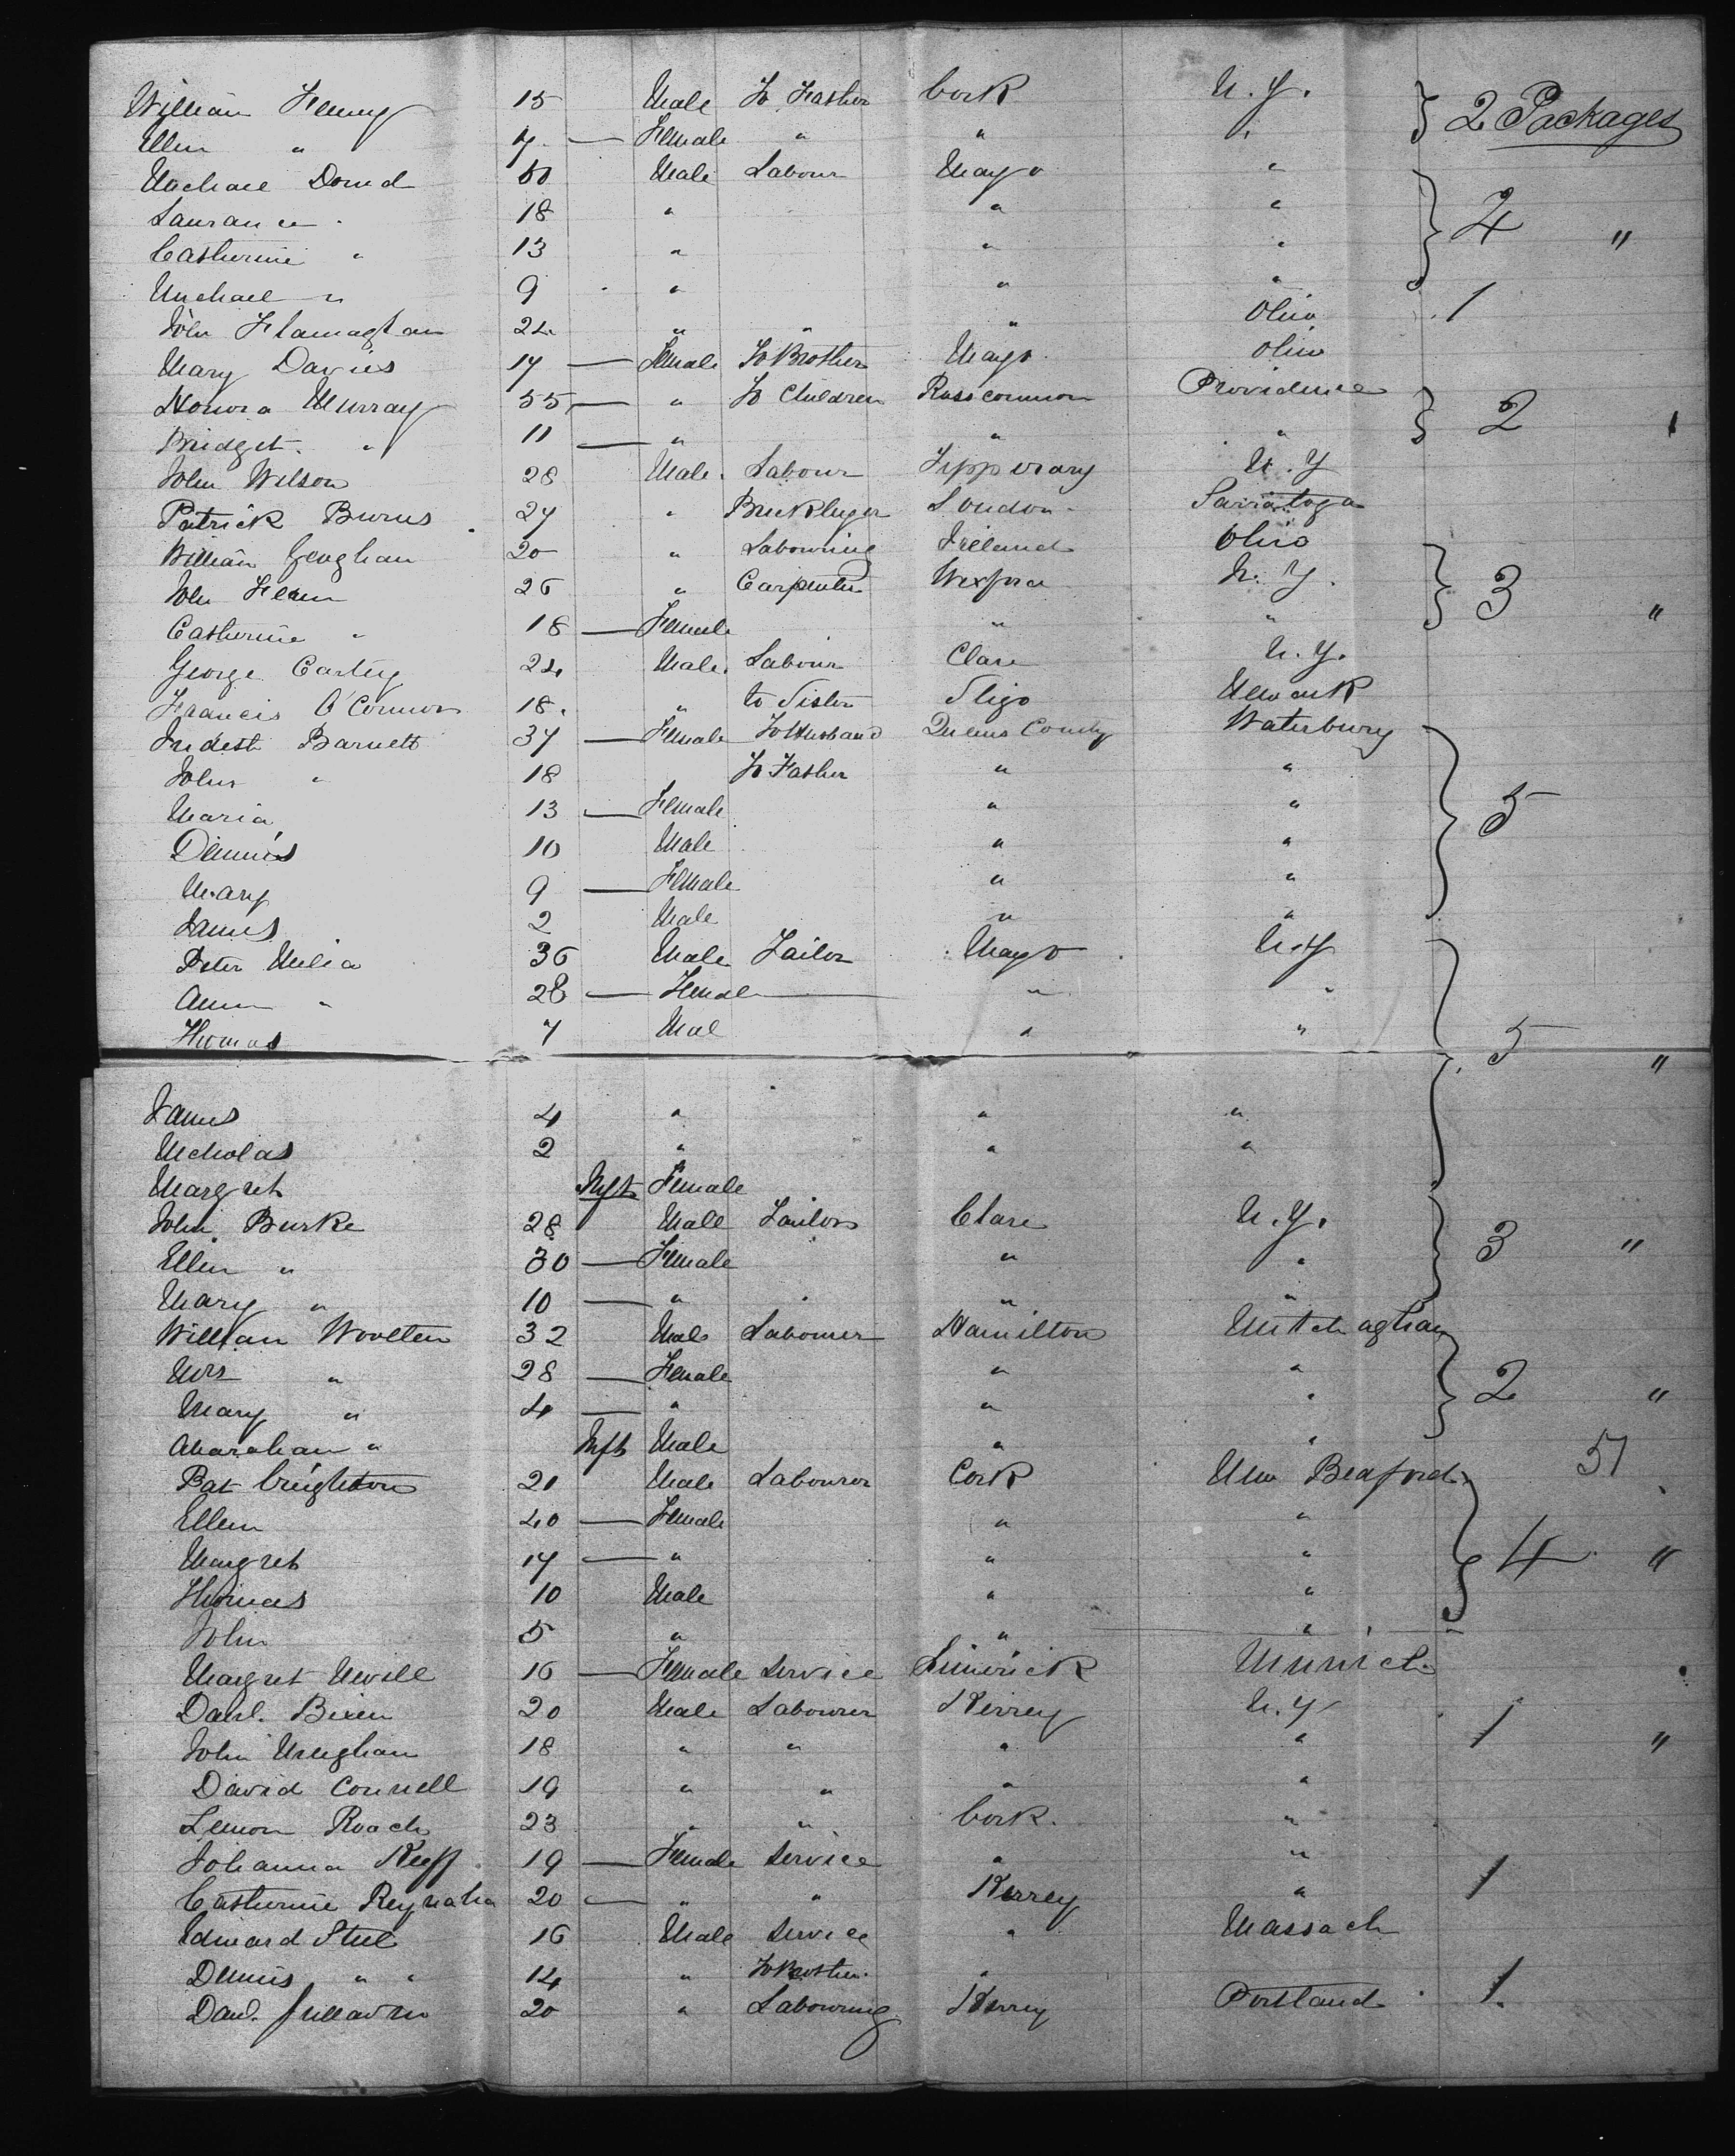 William Fenny 15 Male To Father Cork N.Y. } 2 Packages
Ellen " 7 — Female " " "
Michael Dowd 50 Male Labour Mayo "
Laurance " 18 " " " } 4 "
Catherine " 13 " " "
Michael " 9 " " "
John Flanaghan 24 " " " Ohio 1
Mary Davies 17 — Female To Brother Mayo Ohio
Honora Murray 55 — " To Children Rosscommon Providence } 2 "
Bridget " 11 — " " "
John Wilson 28 Male Labour Tipperary N.Y
Patrick Burns 27 " London Saratoga
William Geoghan 20 " Labouring Ireland Ohio
John 26 " Carpenter Wexford N.Y. } 3 "
Catherine " 18 — Female " "
George Cartey 24 Male Labour Clare N.Y.
Francis O'Connor 18 " to Sister Sligo Newark
Barnett 37 — Female To Husband Queens County Waterbury
John " 18 To Father " "
Maria 13 — Female " " } 5
Dennis 10 Male " "
Mary 9 — Female " "
James 2 Male " "
Peter Melia 36 Male Tailor Mayo N.Y
Ann " 28 — Female — " "
Thomas 7 Mal " " } 5 "
James 4 " " "
Nicholas 2 " " "
Margret Inft Female
John Burke 28 Male Tailor Clare N.Y.
Ellen " 30 — Female " " } 3 "
Mary " 10 — " " "
William Woolten 32 Male Labourer Hamilton
Mrs " 28 — Female " " } 2 "
Mary " 4 — " " "
Abraham " Inft Male " "
51
Pat Creighton 20 Male Labourer Cork New Beaford
Ellen 40 — Female " "
Margret 14 — " " " } 4 "
Thomas 10 Male " "
John 5 " " "
Margret Nevill 16 — Female Service Limerick
Danl. 20 Male Labourer Kerrey N.Y
John 18 " " " " 1 "
David Connell 19 " " " "
Roach 23 " " Cork. "
Johanna Keeff 19 — Female Service " "
Catherine 20 — " " Kerrey " 1
Edward Steel 16 Male Service " Massach
Dennis " " 14 " To Brother "
Danl. Sullavan 20 " Labouring Kerrey Portland 1.